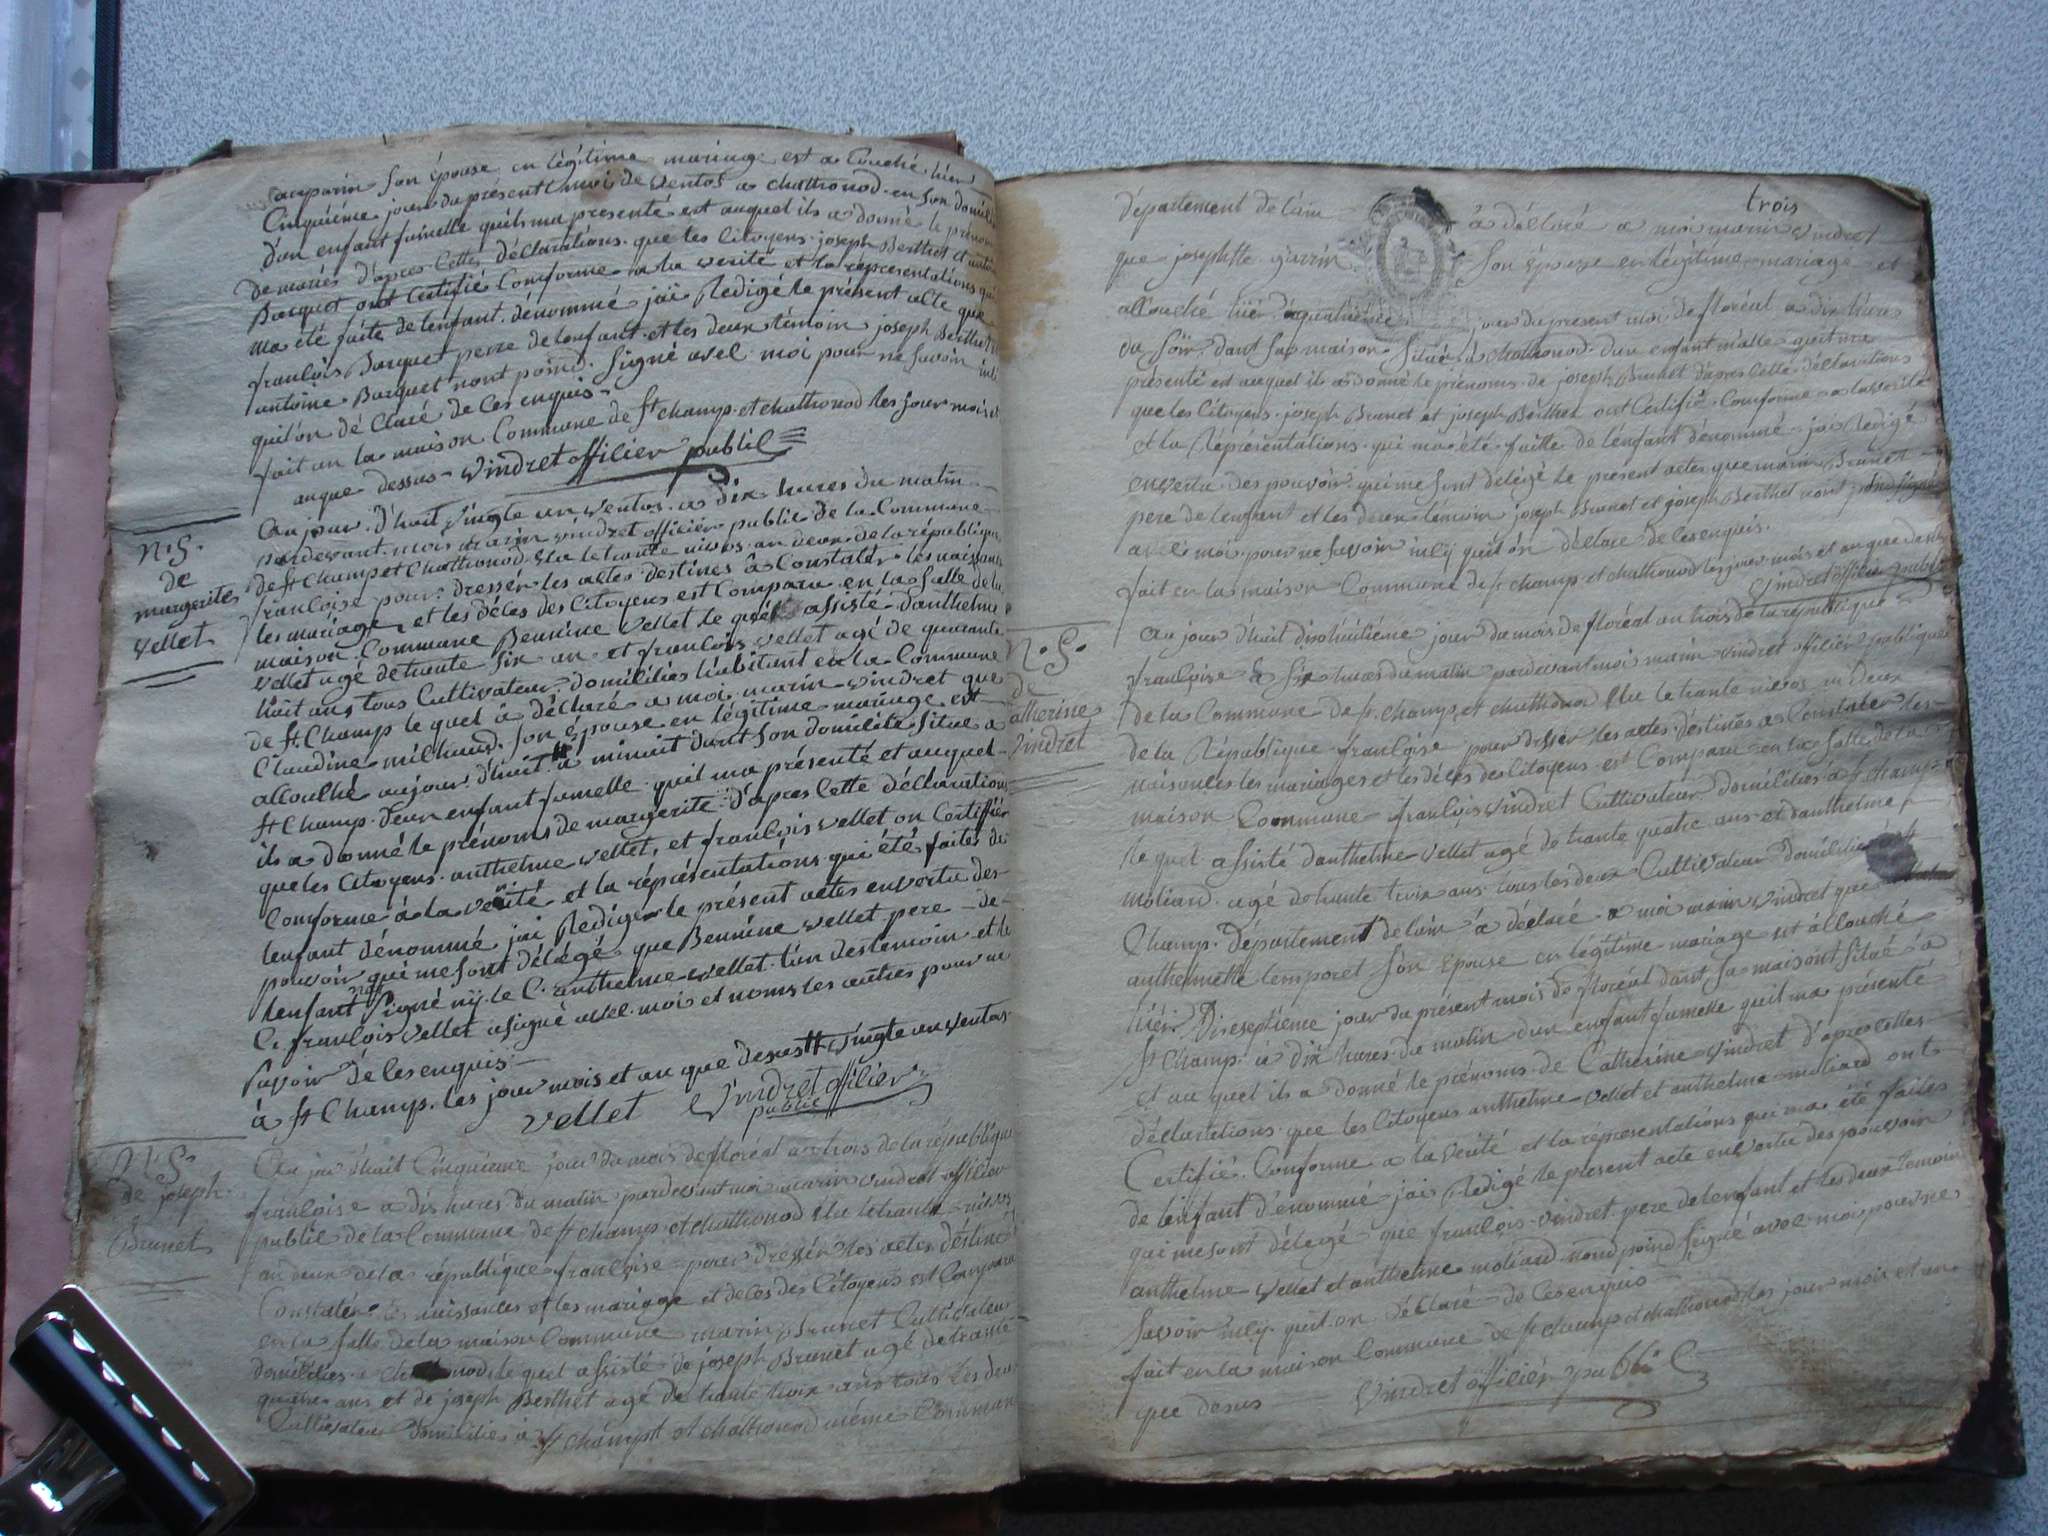 son épouse en légitime mariage est acouché hier
Cinquiéme jour du présent moi de ventos a chathonod en son domicil
d'un enfant fumelle quils ma presenté est auquel ils a donné le prénom
de mariés d'apres Cettes déclarations que les Citoyens joseph Berthet et antoi
Barquet ont Certifié Comforme a la verité et la représentations qui
ma été faite de lenfant dénommé jai Redigé le présent acte que
françois Barquet perre de lenfant et les deux témoin joseph Berthet
antoine Barquet nont poind Signé avec moi pour ne savoir
quil on dé Claré de Ces enquis
fait en la maison Commune de st champ et chathonod les jour mois et
an que dessus Vindret officier public
N. S.
de
margerite
vellet
Au jour d'huit vingte un ventos a dix hures du matin
pardevant mois marin vindret officier public de la Commune
de st Champ et Chathonod Elu le trante nivos an deux de la république
françoise pour dressér les actes destinés â Constatér les naissance
les mariage et les déces des Citoyens est Comparu en la salle de la
maison Commune Bennine vellet le quel assisté danthelme
vellet agé de trante six an et françois vellet agé de quarante
huit ans tous Cultivateur domiciliés habitant en la Commune
de st Champ le quel â déclaré a moi marin vindret que
Claudine milhaud son épouse en légitime mariage est
accouché aujour d'huit a minuit dans son domicile situé a
st Champ d'eun enfant fumelle quil ma présenté et auquel
ils a donné le prénoms de margerite d'apres Cette déclaration
que les Citoyens anthelme vellet et françois vellet on Certiffiér
Comforme â la verité et la réprésentations qui été faites de
lenfant dénommé jai Rediger le présent actes en vertu des
pouvoir qui me sont délégé que Bennine vellet pere de
lenfant na signé ny le C. anthelme vellet l'un des temoin et le
C. françois vellet a signé avec moi et noms les autres pour ne
savoir dé Ces enquis
â st Champ les jour mois et an que desus vingte un ventos
vellet Vindret officier
public
N. S.
de joseph
Brunet
Au jour d'huit Cinquieme jour du mois de floréal an trois de la république
françoise a dix hures du matin pardevant moi marin vindret officier
public de la Commune de st champ et chathonod Elu le trante nivos
an deux de la république françoise pour dressér les actes déstiné
Constatér les naissances et les mariage et déces des Citoyens est Comparu
en la salle de la maison Commune marin Brunet Cultivateur
domiciliés a chathonod le quel assisté de joseph Brunet agé de trante
quatre ans et de joseph Berthet agé de trante troix ans tous les deux
Cultivateur domiciliés â st champ et chathonod même Commun
trois
département de lain â déclaré a moi marin vindret
que josephtte son épouse en légitime mariage et
accouché hiér quatrieme jour du present moi de floréal a dix hures
du soir dans sa maison situé â chathonod dun enfant mâlle quil ma
présenté est auquel ils a donné le prénoms de joseph Brunet d'apres Cette déclarations
que les Citoyens joseph Brunet et joseph Bérthet ont Certifié Comforme a la vérité
et la Répresentations qui ma été faitte de lenfant dénommé jai Redigé
en vertu des pouvoir qui me sont délégé le present actes que marin Brunet
pere de lenfant et les deux temoin joseph Brunet et joseph Berthet nont poind signé
avec moi pour ne savoir quil on déclaré de Ces enquis
fait en la maison Commune de st champ et chathonod les jour mois et an que desus
Vindret officier public
N. S.
de
Catherine
Vindret
Au jour d'huit dixhuitiéme jour du mois de floréal an trois de la république
françoise a six hures du matin pardevant moi marin vindret officiér publique
de la Commune de st champ et chathonod Elu le trante nivos an deux
de la République françoise pour dressér les actes déstinés a Constatér les
naisances les mariages et les déces des Citoyens est Comparu en la salle de la
maison Commune françois vindret Cultivateur domiciliés a st champ
le quel assisté danthelme vellet agé de trante quatre ans et danthelme
moliard agé de trante troix ans tous les deux Cultivateur domiciliés â st
Champ Département de lain â déclaré a moi marin vindret que
anthelmette temporet son épouse en legitime mariage est accouché
hiér Dixseptieme jour du présent mois de floréal dans sa maisont situé â
st Champ â dix hures du matin dun enfant fumelle quil ma présenté
et auquel ils a donné le prénoms de Catherine vindret d'apres Cettes
déclarations que les Citoyens anthelme vellet et anthelme moliard ont
Certifié Comforme a la verité et la réprésentations qui ma été faites
de lenfant dénommé jai Redigé le present acte en vertu des pouvoir
qui me sont délegé que françois vindret pere de lenfant et les deux temoin
anthelme vellet et anthelme moliard nond poind signé avec moi pour ne
savoir quil on déclaré de Ces enquis
fait en la maison Commune de st champ et chathonod les jour mois et an
que desus Vindret officiér public